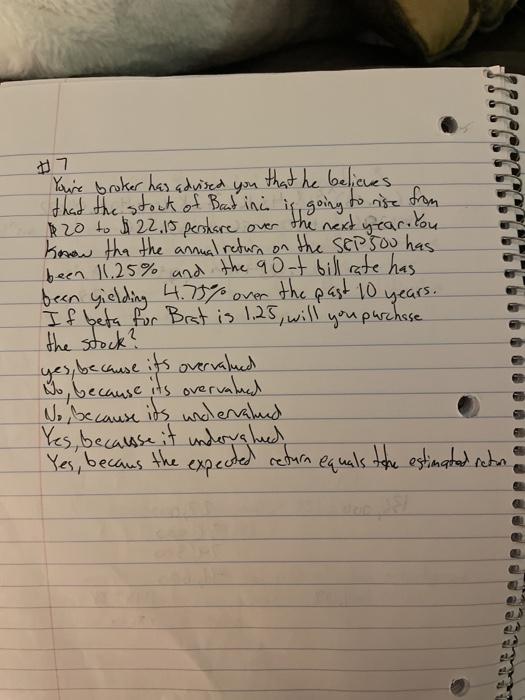 #7
You're broker has advised you that he believes
that the stock of Brat inc. is going to rise from
$20 to $22.15 pershare over the next year. You
know tha the annual return on the S&P 500 has
been 11.25% and the 90-t bill rate has
been yielding 4.75% over the past 10 years.
If beta for Brat is 1.25, will you purchase
the stock?
yes, because its overvalued
No, because its overvalued
No, because its undervalued
Yes, because it undervalued
Yes, becaus the expected return equals the estimated return